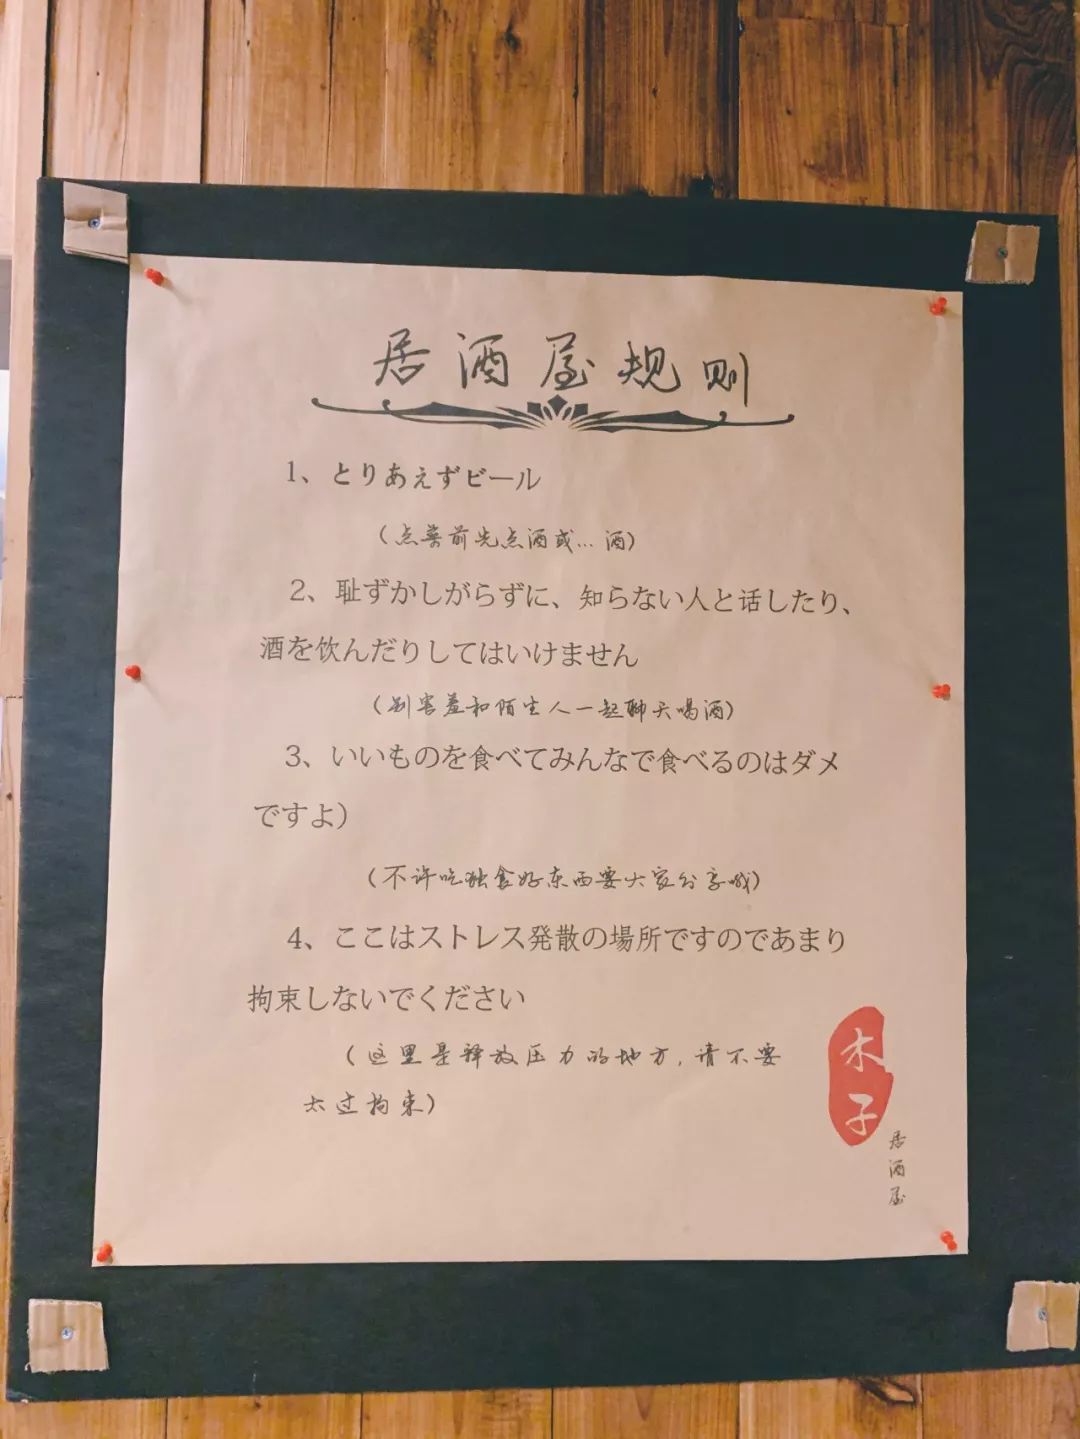 居酒屋规则
1、とりあえずビール
（点菜前先点酒或...酒）
2、恥ずかしがらずに、知らない人と话したり、
酒を饮んだりしてはいけません
（别害羞和陌生人一起聊天喝酒）
3、いいものを食べてみんなで食べるのはダメ
ですよ）
（不许吃独食好东西要大家分享哦）
4、ここはストレス発散の場所ですのであまり
拘束しないでください
（这里是释放压力的地方，请不要
太过拘束）
木子
居酒屋